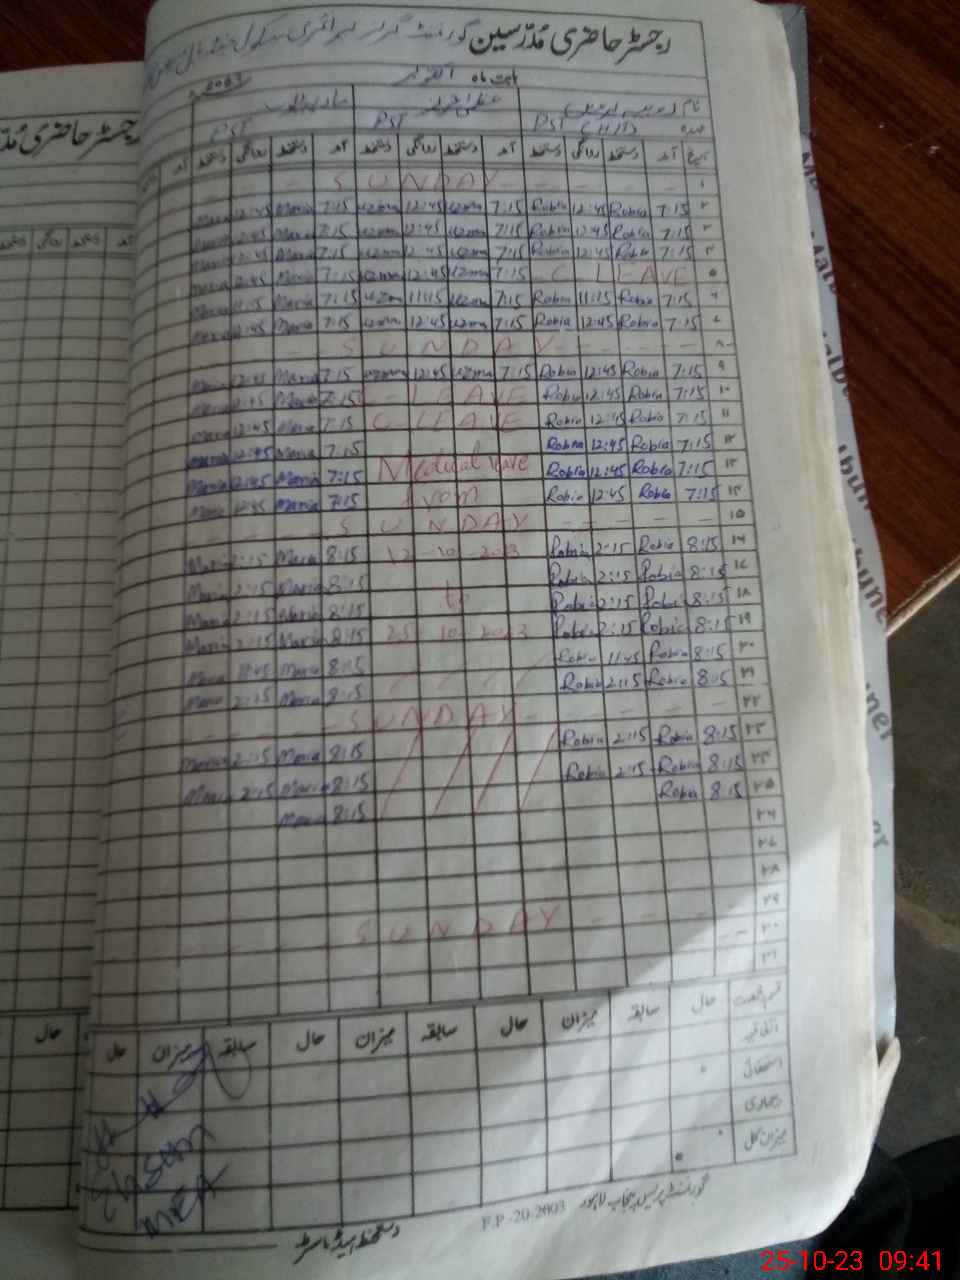 رجسٹر حاضری مُدّرسین گورنمنٹ گرلز پرائمری سکول
بابت ماہ اکتوبر 2023
نام
عہدہ PST PST PST
تاریخ آمد دستخط روانگی دستخط آمد دستخط روانگی دستخط آمد دستخط روانگی دستخط آمد
۱ SUNDAY
۲ 7:15 Robia 12:45 Robia 7:15 Uzma 12:45 Uzma 7:15 Maria 12:45 Maria
۳ 7:15 Robia 12:45 Robia 7:15 Uzma 12:45 Uzma 7:15 Maria 12:45 Maria
۴ 7:15 Robia 12:45 Robia 7:15 Uzma 12:45 Uzma 7:15 Maria 12:45 Maria
۵ C LEAVE 7:15 Uzma 12:45 Uzma 7:15 Maria 12:45 Maria
۶ 7:15 Robia 11:15 Robia 7:15 Uzma 11:15 Uzma 7:15 Maria 11:15 Maria
۷ 7:15 Robia 12:45 Robia 7:15 Uzma 12:45 Uzma 7:15 Maria 12:45 Maria
۸ SUNDAY
۹ 7:15 Robia 12:45 Robia 7:15 Uzma 12:45 Uzma 7:15 Maria 12:45 Maria
۱۰ 7:15 Robia 12:45 Robia C LEAVE 7:15 Maria 12:45 Maria
۱۱ 7:15 Robia 12:45 Robia C LEAVE 7:15 Maria 12:45 Maria
۱۲ 7:15 Robia 12:45 Robia Medical leave 7:15 Maria 12:45 Maria
۱۳ 7:15 Robia 12:45 Robia from 7:15 Maria 12:45 Maria
۱۴ 7:15 Robia 12:45 Robia 7:15 Maria 12:45 Maria
۱۵ SUNDAY
۱۶ 8:15 Robia 2:15 Robia 12-10-2023 8:15 Maria 2:15 Maria
۱۷ 8:15 Robia 2:15 Robia 8:15 Maria 2:15 Maria
۱۸ 8:15 Robia 2:15 Robia to 8:15 Maria 2:15 Maria
۱۹ 8:15 Robia 2:15 Robia 25-10-2023 8:15 Maria 2:15 Maria
۲۰ 8:15 Robia 11:45 Robia 8:15 Maria 11:45 Maria
۲۱ 8:15 Robia 2:15 Robia 8:15 Maria 2:15 Maria
۲۲ SUNDAY
۲۳ 8:15 Robia 2:15 Robia 8:15 Maria 2:15 Maria
۲۴ 8:15 Robia 2:15 Robia 8:15 Maria 2:15 Maria
۲۵ 8:15 Robia 8:15 Maria
۲۶
۲۷
۲۸
۲۹ SUNDAY
۳۰
۳۱
قسم رخصت حال سابقہ میزان حال سابقہ میزان حال سابقہ میزان حال
اتفاقیہ
استحقاقی
بیماری
میزان کل
دستخط ہیڈ ماسٹر
F.P-20-2003 گورنمنٹ پریس پنجاب لاہور
رجسٹر حاضری
آمد دستخط روانگی دستخط
حال
25-10-23 09:41